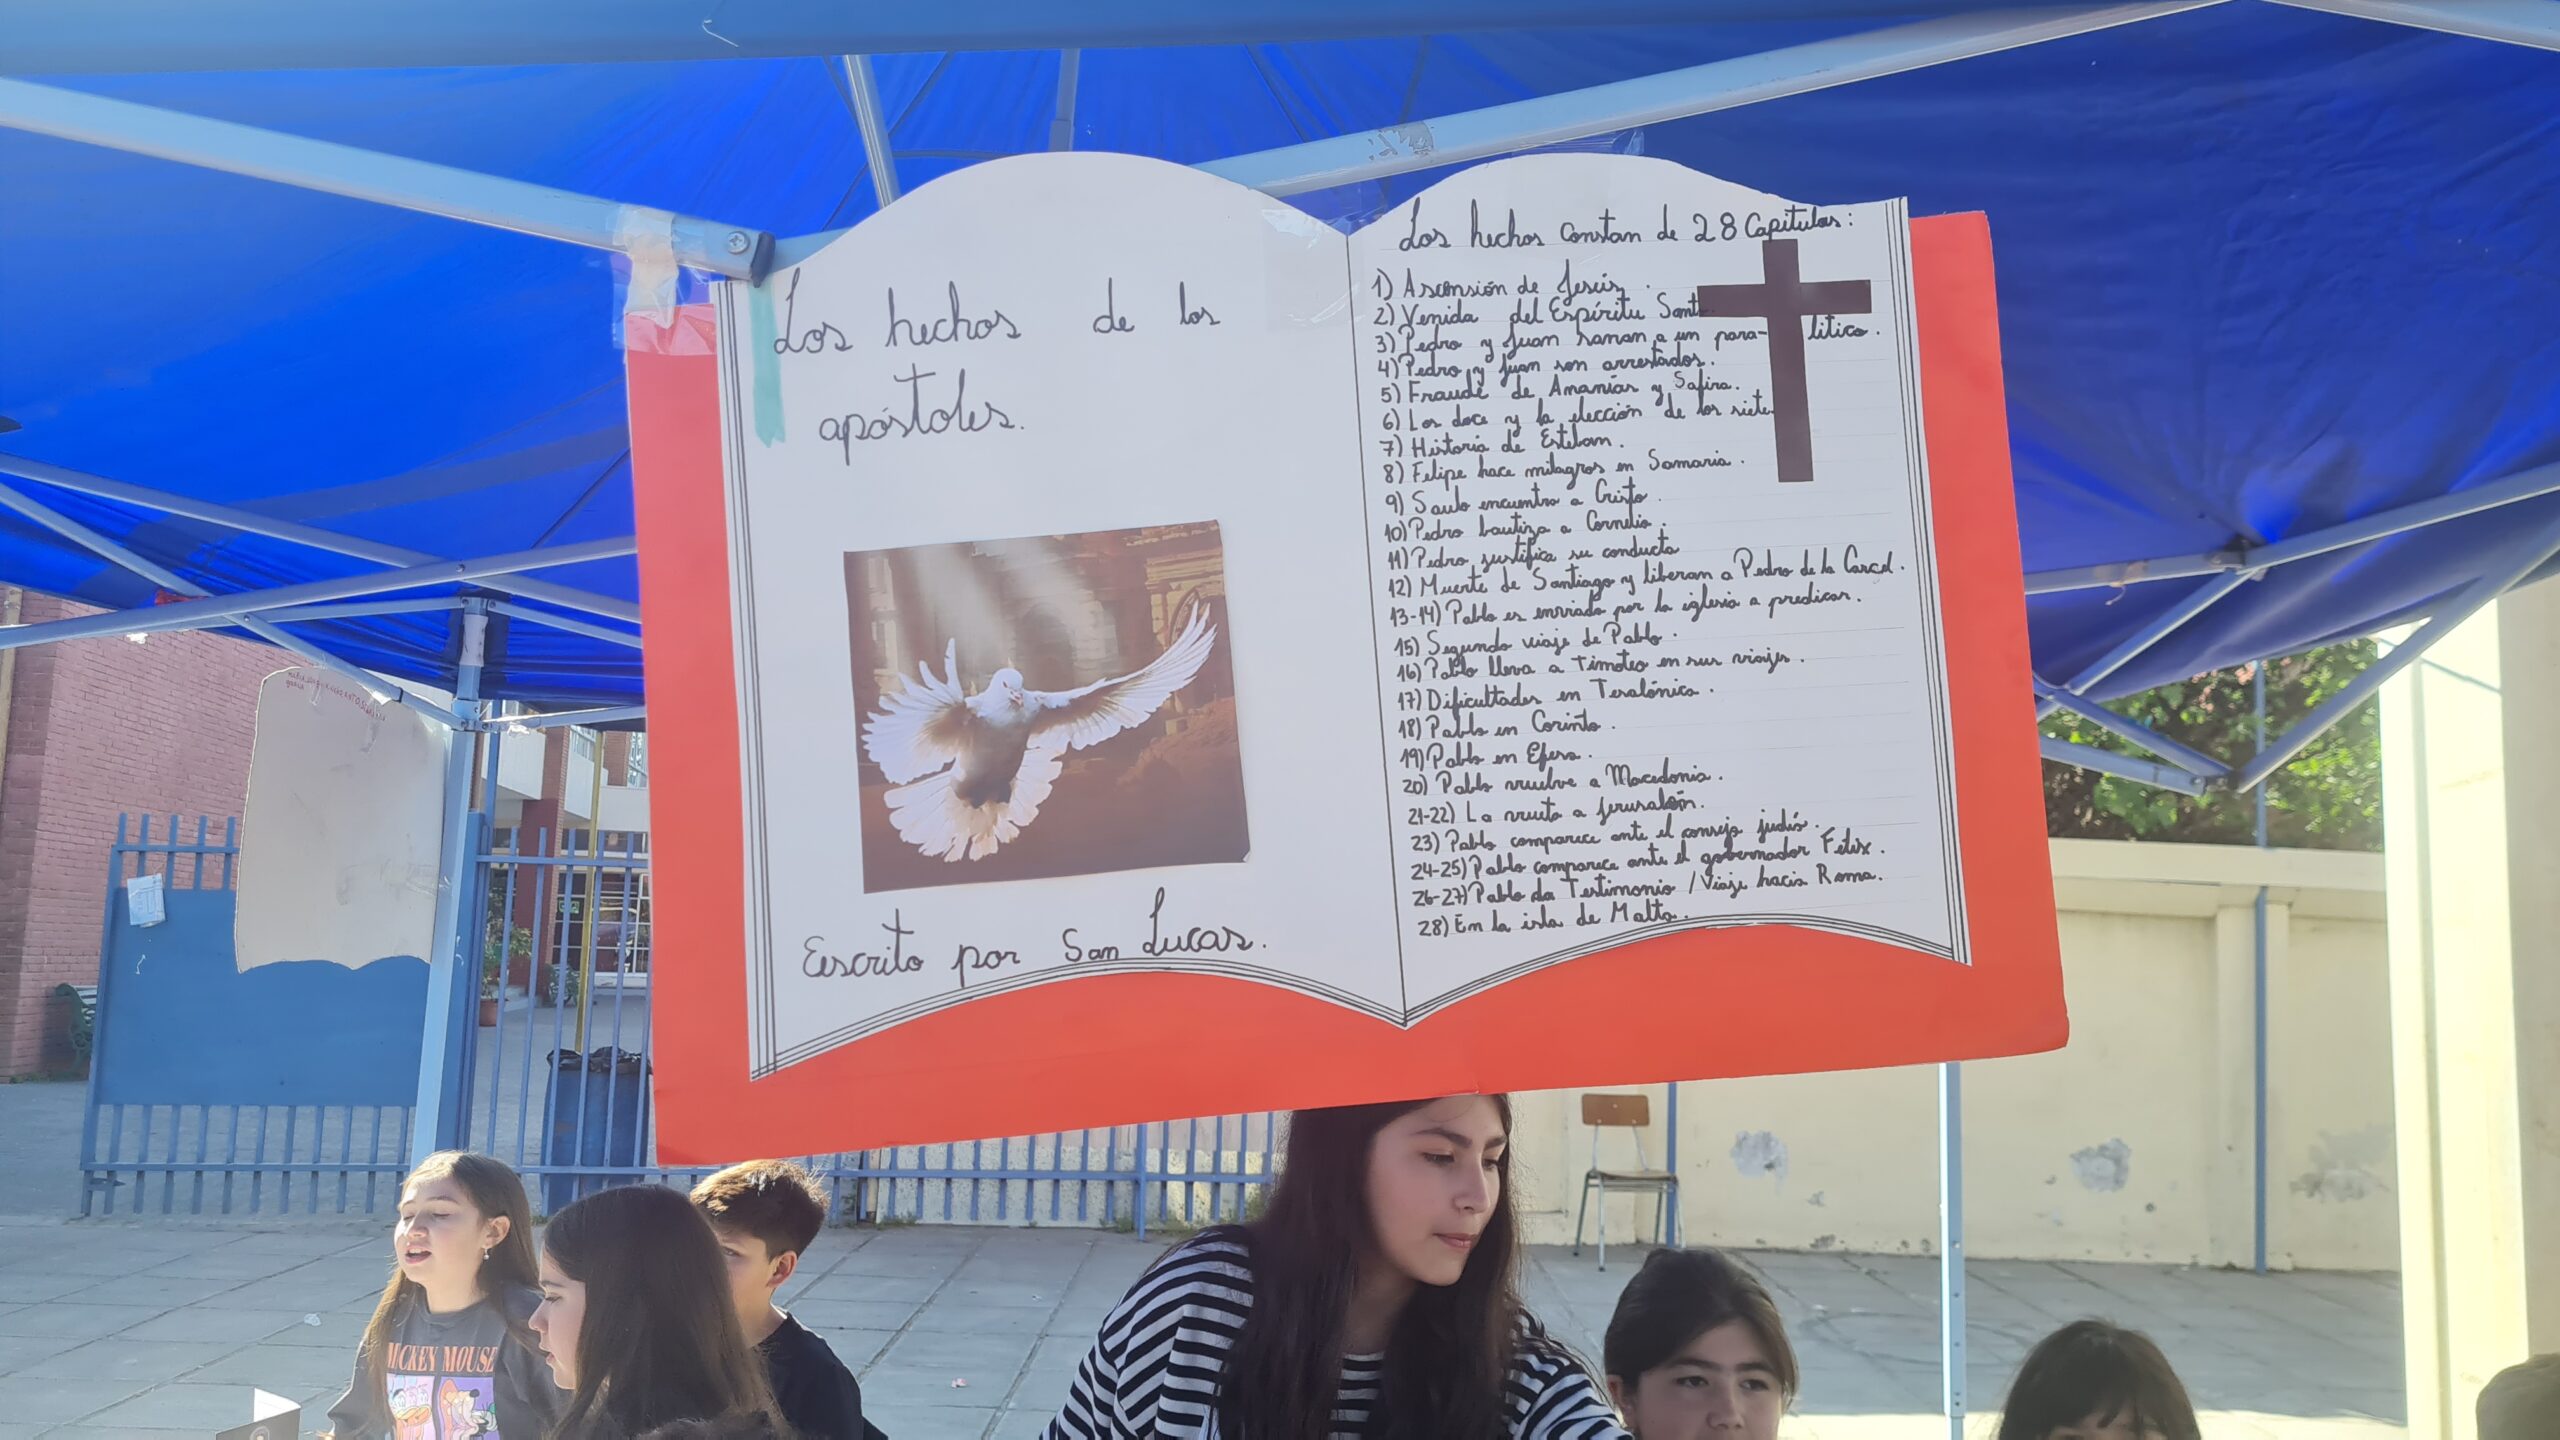 Los hechos de los
apóstoles.
Escrito por San Lucas.
Los hechos constan de 28 Capitulos:
1) Ascensión de Jesús.
2) Venida del Espíritu Sant
3) Pedro y Juan sanan a un para- litico.
4) Pedro y Juan son arrestados.
5) Fraude de Ananías y Safira.
6) Los doce y la elección de los siete
7) Historia de Esteban.
8) Felipe hace milagros en Samaria.
9) Saulo encuentra a Cristo.
10) Pedro bautiza a Cornelio.
11) Pedro justifica su conducta
12) Muerte de Santiago y liberan a Pedro de la Carcel.
13-14) Pablo es enviado por la iglesia a predicar.
15) Segundo viaje de Pablo.
16) Pablo lleva a timoteo en sus viajes.
17) Dificultades en Tesalónica.
18) Pablo en Corinto.
19) Pablo en Efeso.
20) Pablo vuelve a Macedonia.
21-22) La vuelta a Jerusalén.
23) Pablo comparece ante el consejo judío.
24-25) Pablo comparece ante el gobernador Felix.
26-27) Pablo da Testimonio / Viaje hacia Roma.
28) En la isla de Malta.
MICKEY MOUSE